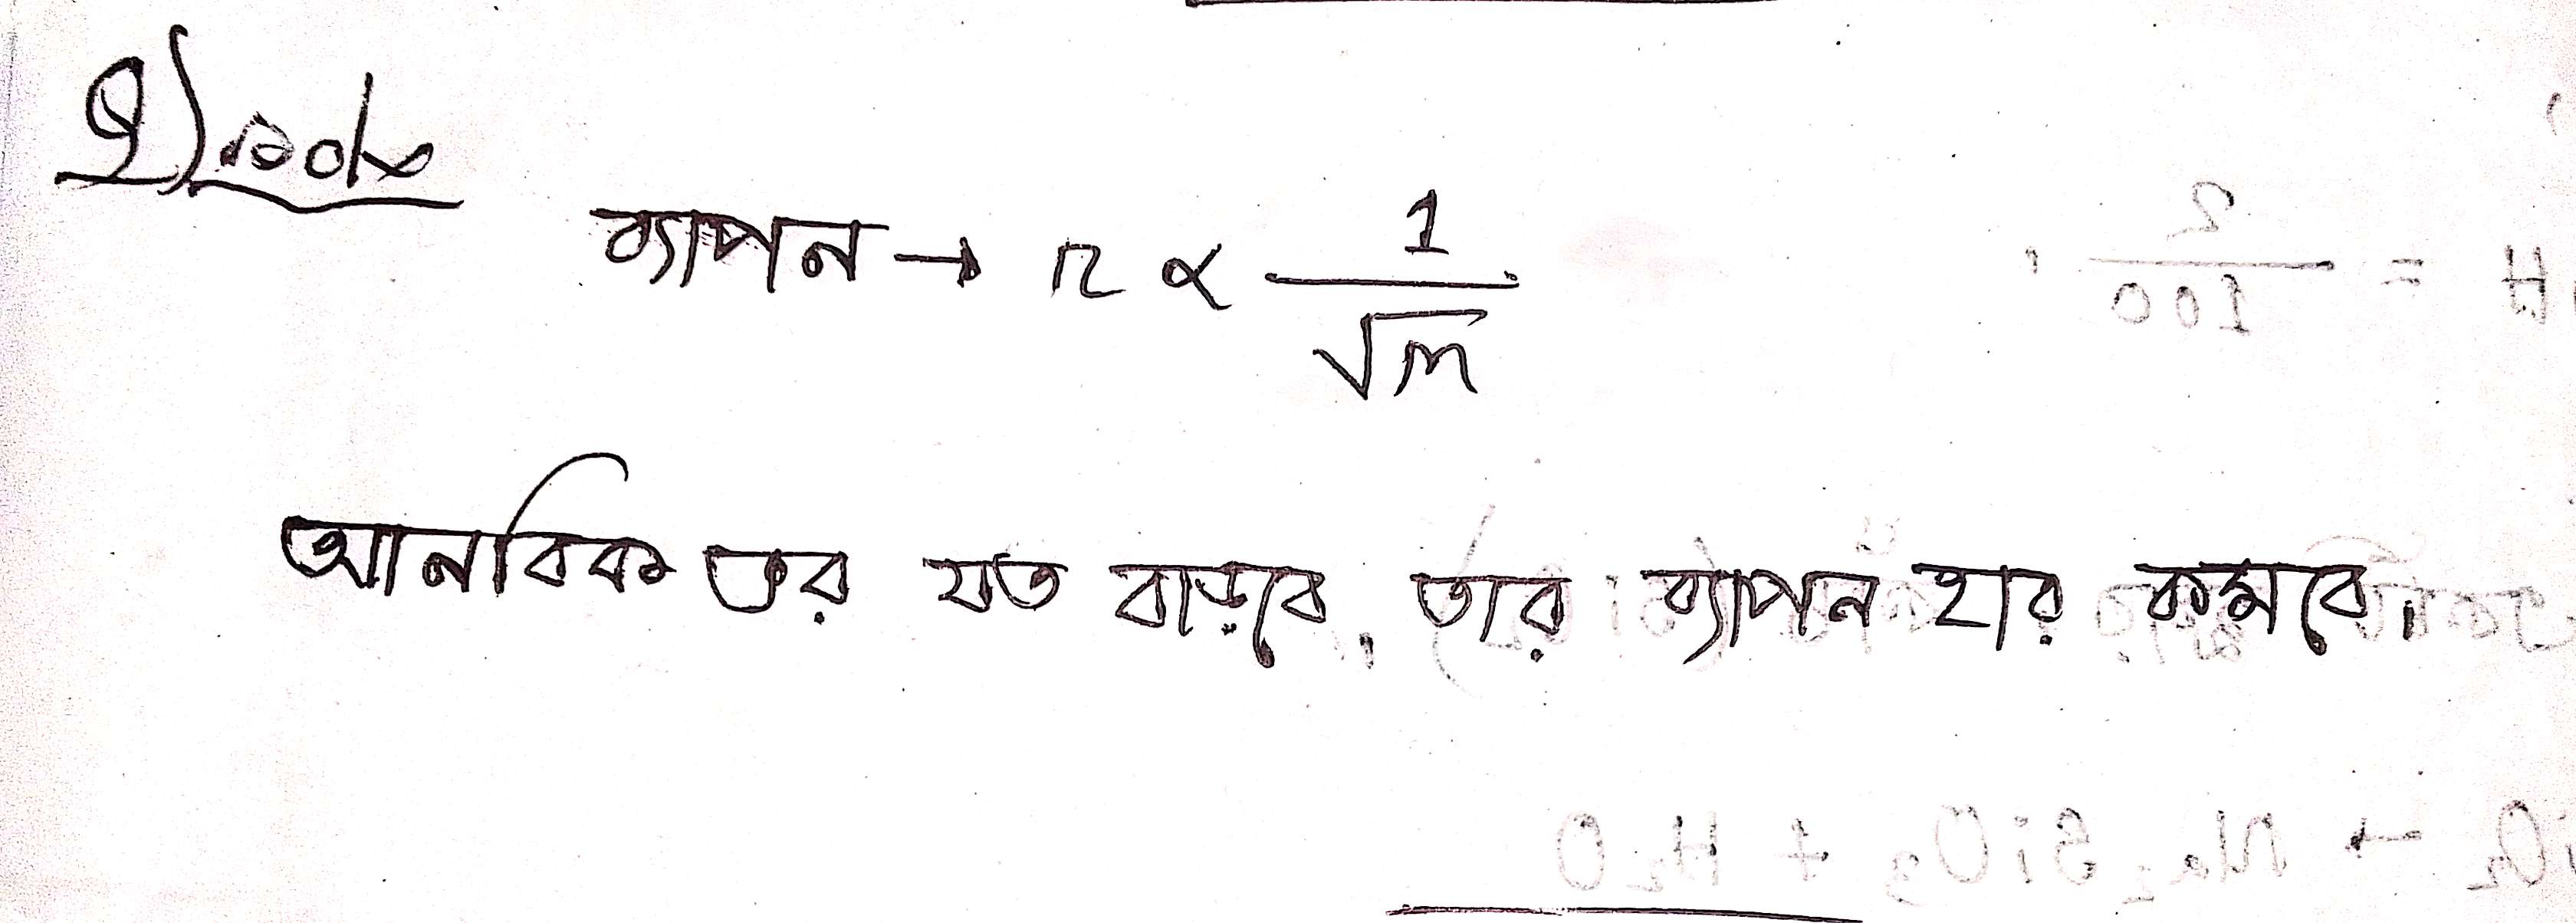 ব্যাপন → r ∝ 1/√m
আনবিক ভর যত বাড়বে, তার ব্যাপন হার কমবে।